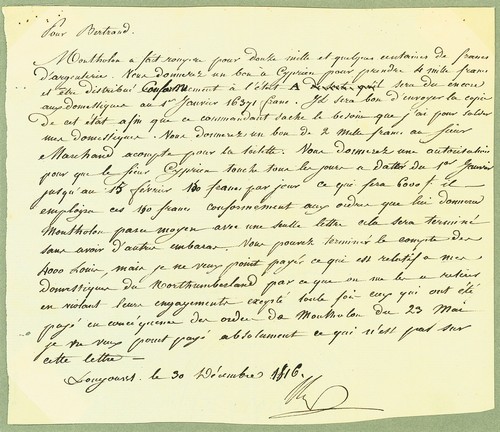 Pour Bertrand.
Montholon a fait rompre pour douze mille et quelques centaines de francs
d'argenterie. Vous donnerez un bon à Cyprien pour prendre 4 mille francs
et être distribué conformément à l'état A qu'il sera du encore
aux domestiques au 1er Janvier 1639 francs. Il sera bon d'envoyer la copie
de cet état afin que ce commandant sache le besoin que j'ai pour solder
mes domestiques Vous donnerez un bon de 2 mille francs au sieur
Marchand acompte pour la toilette. Vous donnerez une autorisation
pour que le sieur Cyprien touche tous les jours a datter du 1er Janvier
jusqu'au 15 février 130 francs par jour ce qui fera 6000 f. il
employra ces 130 francs conformement aux ordre que lui donnera
Montholon par ce moyen avec une seulle lettre cela sera terminé
sans avoir d'autre embaras. Vous pouvez terminer le compte des
4000 Louis, mais je ne veux point payés ce qui est relatif a mes
domestiques du Northumberland par ce que on me les a retirés
en violant leurs engagements excepté toute fois eux qui ont été
payé en conséquence des ordre de Montholon du 23 Mai
je ne veux point payé absolument ce qui n'est pas sur
cette lettre —
Longwood le 30 Décembre 1816.